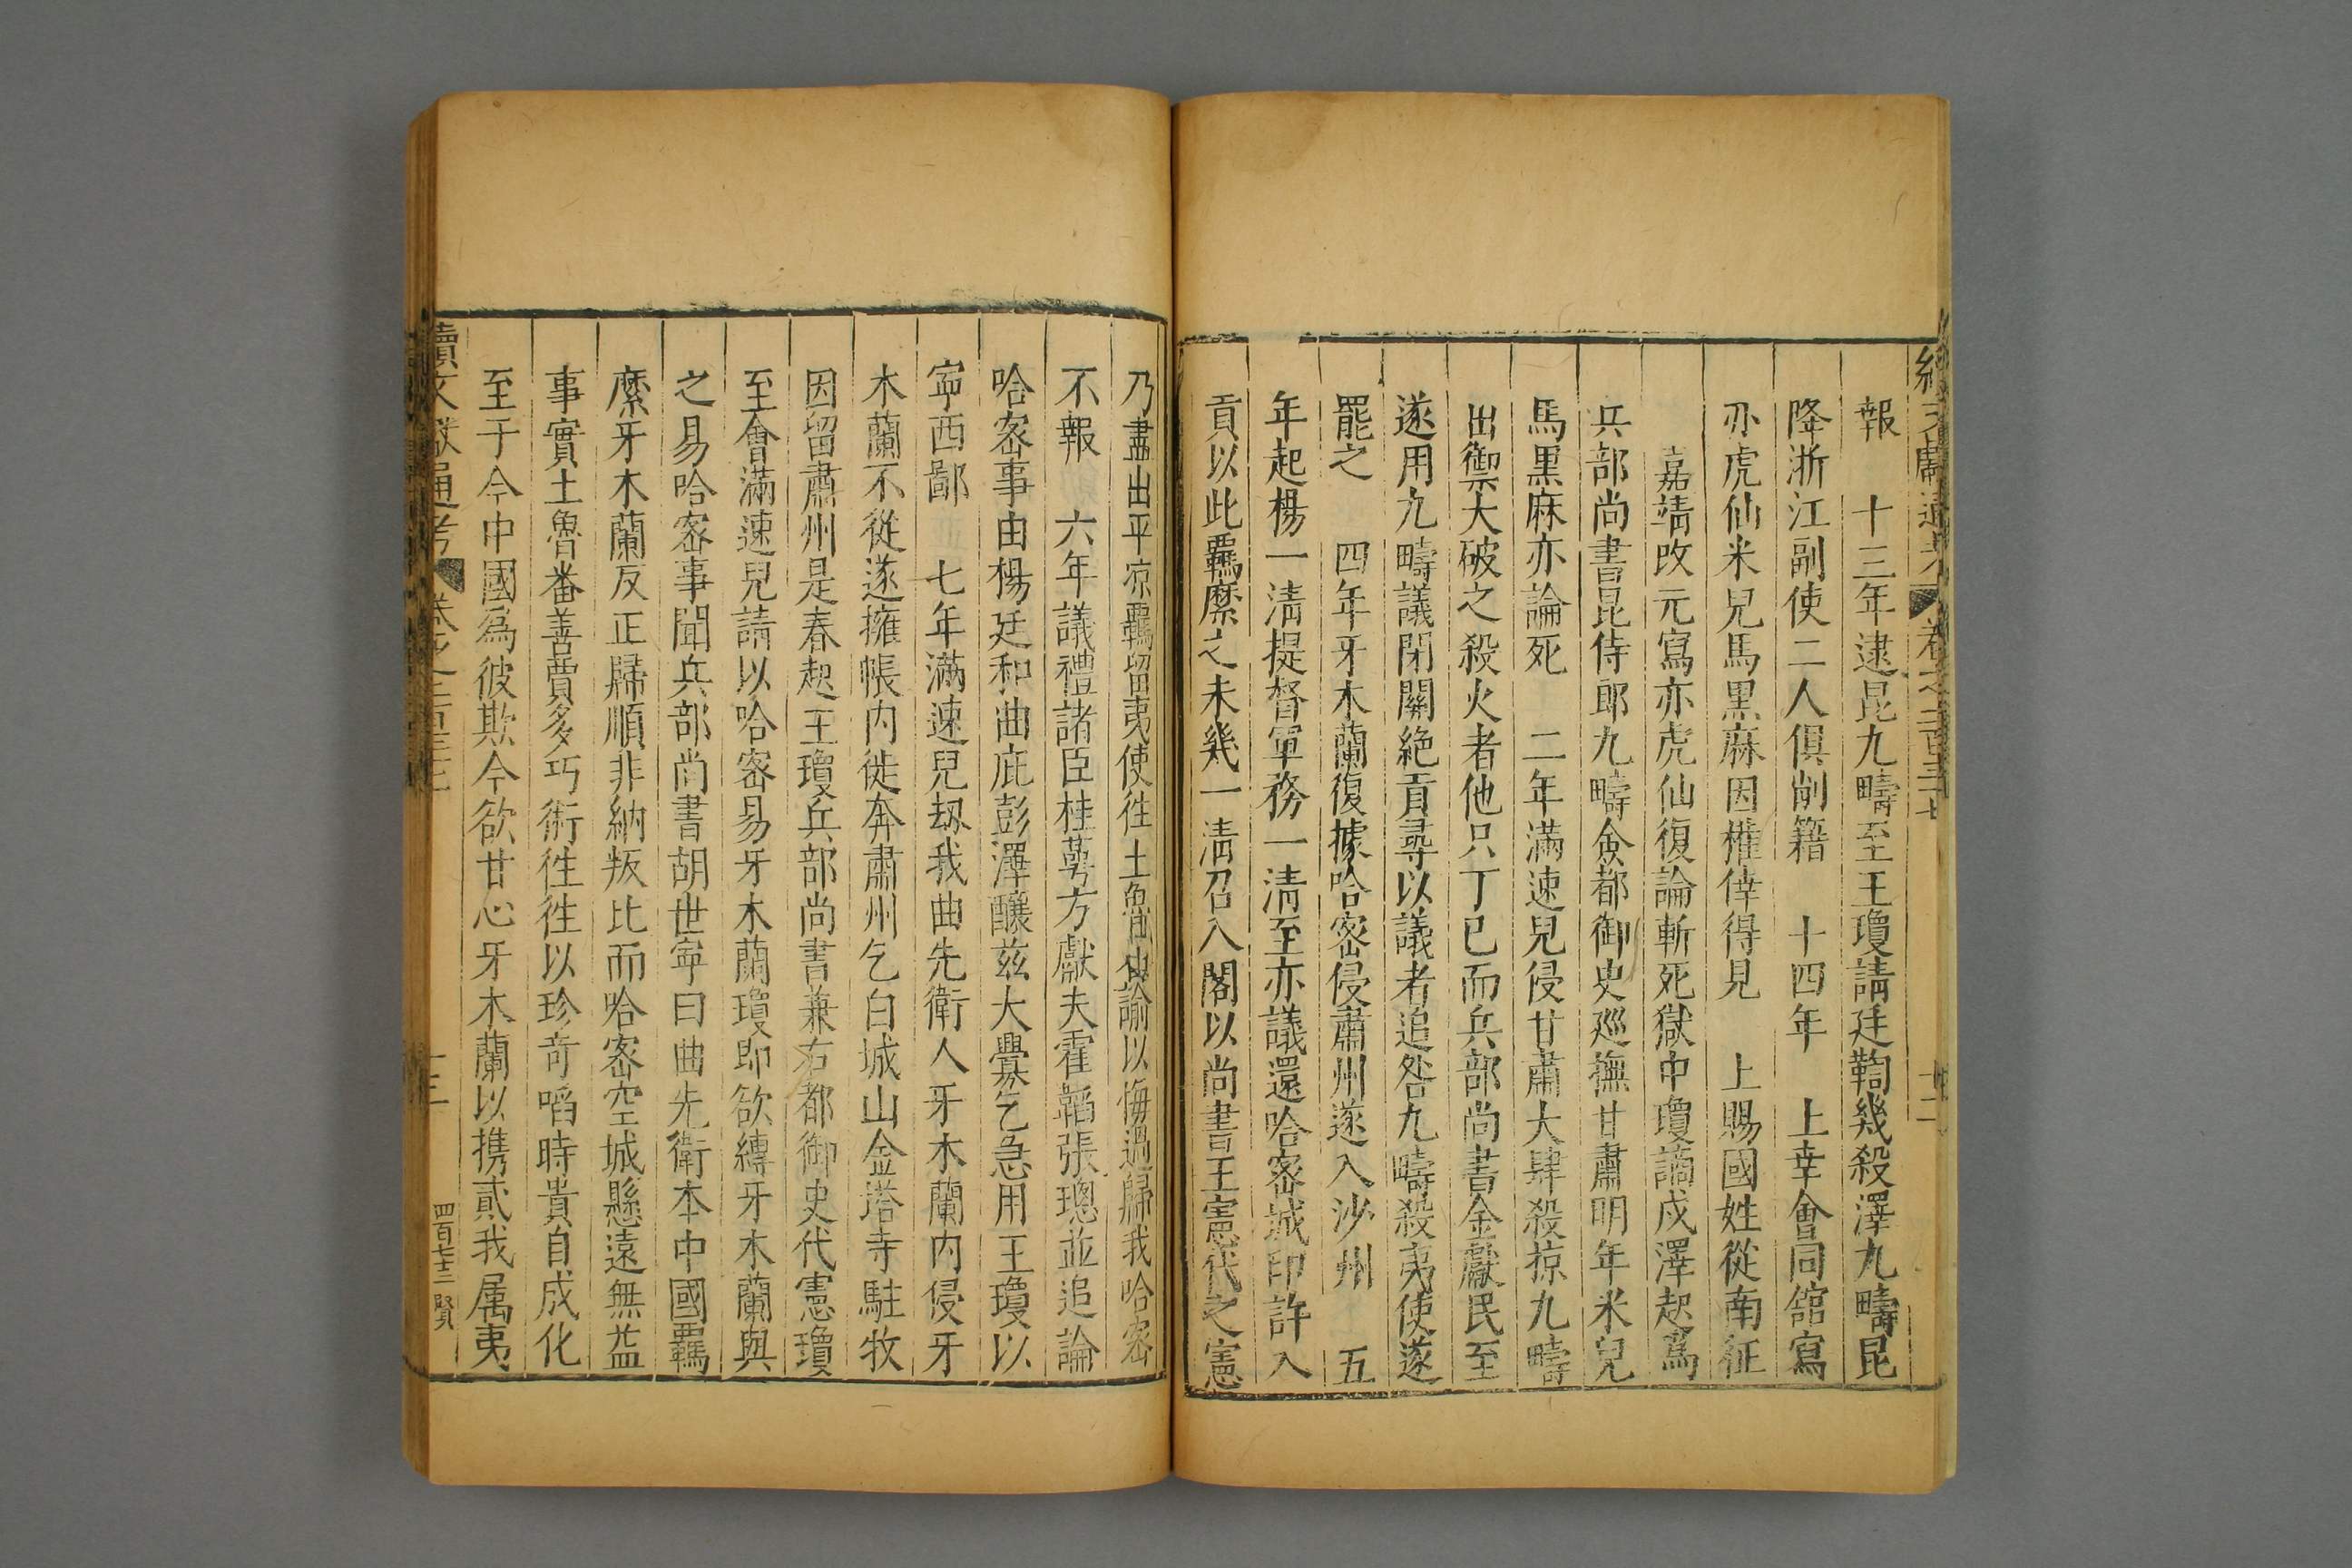 續文獻通考 卷之二百三十七 十二
報 十三年逮昆九疇至王瓊請廷鞫幾殺澤九疇昆
降浙江副使二人俱削籍 十四年 上幸會同舘寫
亦虎仙米兒馬黑麻因權倖得見 上賜國姓從南征
嘉靖改元寫亦虎仙復論斬死獄中瓊謫戍澤起爲
兵部尚書昆侍郎九疇僉都御史廵撫甘肅明年米兒
馬黑麻亦論死 二年滿速兒侵甘肅大肆殺掠九疇
出禦大破之殺火者他只丁已而兵部尚書金獻民至
遂用九疇議閉關絶貢尋以議者追咎九疇殺夷使遂
罷之 四年牙木蘭復據哈密侵肅州遂入沙州 五
年起楊一清提督軍務一清至亦議還哈密城印許入
貢以此羈縻之未幾一清召入閣以尚書王憲代之憲
乃盡出平凉羈留夷使徃土魯番諭以悔過歸我哈密
不報 六年議禮諸臣桂萼方獻夫霍韜張璁並追論
哈密事由楊廷和曲庇彭澤釀兹大釁乞急用王瓊以
寧西鄙 七年滿速兒刼我曲先衛人牙木蘭内侵牙
木蘭不從遂擁帳内徙奔肅州乞白城山金塔寺駐牧
因留肅州是春起王瓊兵部尚書兼右都御史代憲瓊
至會滿速兒請以哈密易牙木蘭瓊即欲縛牙木蘭與
之易哈密事聞兵部尚書胡世寧曰曲先衛本中國羈
縻牙木蘭反正歸順非納叛比而哈密空城懸遠無益
事實土魯番善賈多巧術徃徃以珍竒㗖時貴自成化
至于今中國爲彼欺今欲甘心牙木蘭以携貳我属夷
續文獻通考 卷之二百三十七 十二 四百七十二 賢